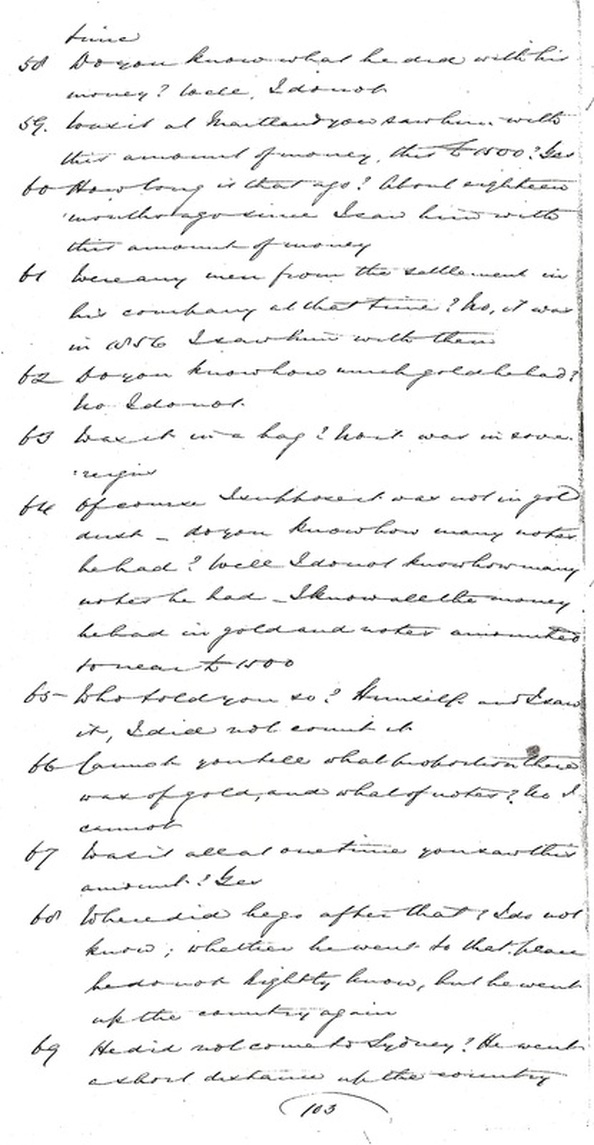 time
58 Do you know what he did with his
money? Well, I do not
59. Was it at Maitland you saw him with
this amount of money, this £1500? Yes
60 How long is that ago? About eighteen
months ago since I saw him with
this amount of money
61 Were any men from the settlement in
his company at that time? No, it was
in 1856 I saw him with them
62 Do you know how much gold he had?
No I do not.
63 Was it in a bag? No it was in sove
:reigns
64 Of course I suppose it was not in gold
dust _ do you know how many notes
he had? Well I do not know how many
notes he had _ I know all the money
he had in gold and notes amounted
to near £1500
65 Who told you so? Himself and I saw
it, I did not count it
66 Cannot you tell what proportion there
was of gold, and what of notes? No I
cannot
67 Was it all at one time you saw this
amount? Yes
68 Where did he go after that? I do not
know; whether he went to that place
he do not rightly know, but he went
up the country again
69 He did not come to Sydney? He went
a short distance up the country
103